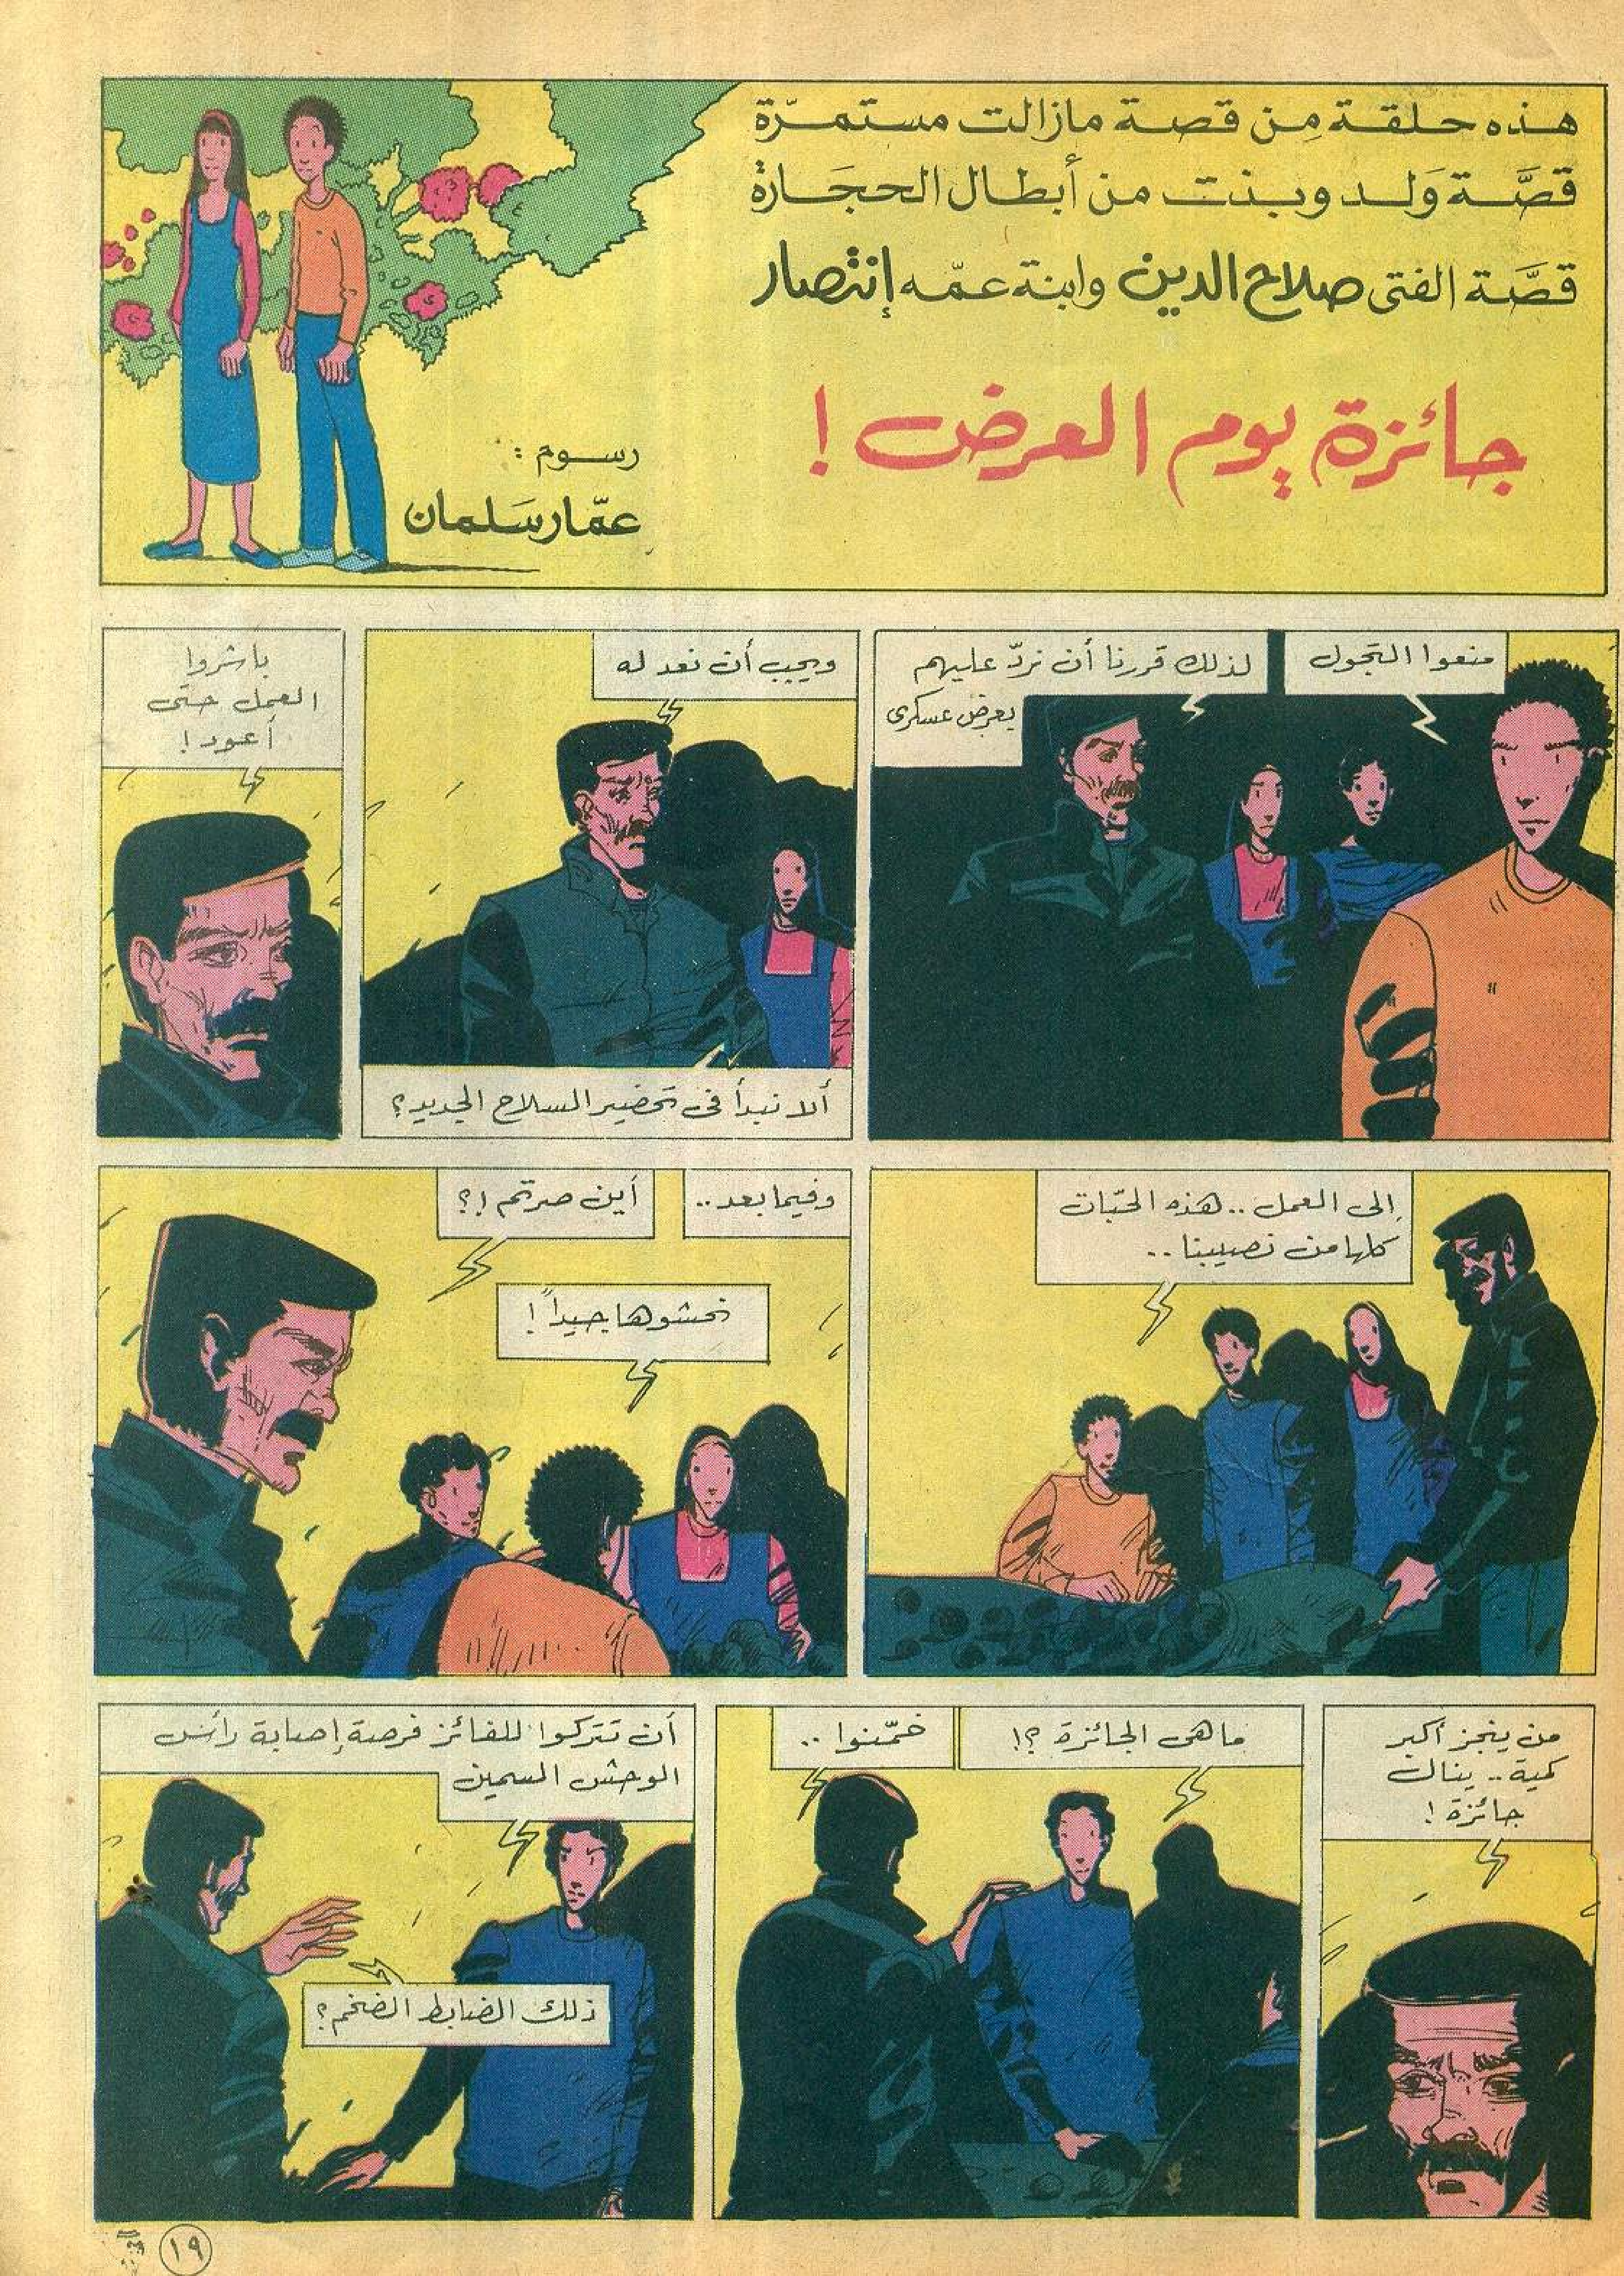 هذه حلقة مِن قصة مازالت مستمرّة
قصَّة وَلد وبنت من أبطال الحجَارة
قصَّة الفتى صلاح الدين وابنة عمّه إنتصار
جائزة يوم العرض !
رسوم :
عمّار سَلمان
منعوا التجول
لذلك قررنا أن نردّ عليهم
بعرض عسكرى
ويجب أن نعد له
ألا نبدأ فى تحضير السلاح الجديد؟
باشروا
العمل حتى
أعود !
إلى العمل .. هذه الحبّات
كلها من نصيبنا ..
وفيما بعد ..
أين صرتم !؟
نحشوها جيداً !
من ينجز أكبر
كمية .. ينال
جائزة !
ما هى الجائزة ؟!
خمّنوا ..
أن تتركوا للفائز فرصة إصابة رأس
الوحش السمين
ذلك الضابط الضخم؟
١٩